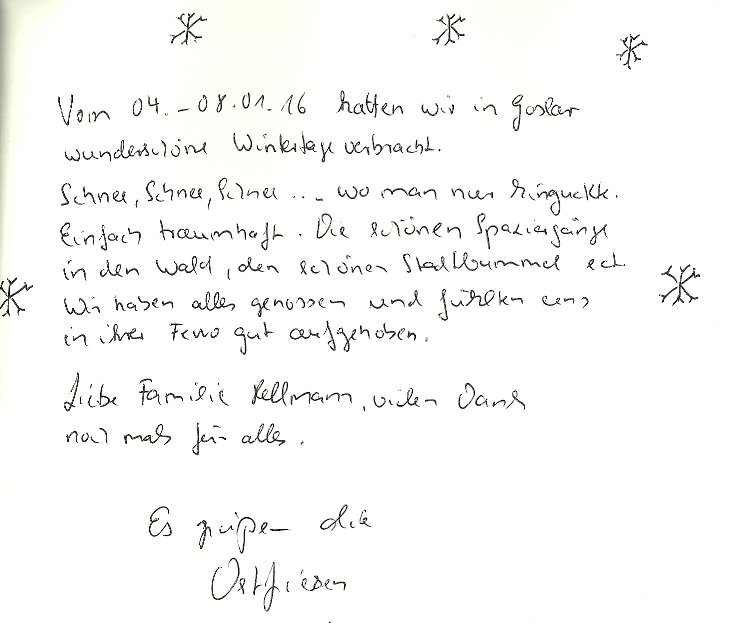 Vom 04. - 08.01.16 hatten wir in Goslar
wunderschöne Wintertage verbracht.
Schnee, Schnee, Schnee ... wo man nur hinguckt.
Einfach traumhaft. Die schönen Spaziergänge
in den Wald, den schönen Stadtbummel ect
Wir haben alles genossen und fühlten uns
in ihrer Fewo gut aufgehoben.
Liebe Familie Kellmann, vielen Dank
noch mals für alles.
Es grüßen die
Ostfriesen